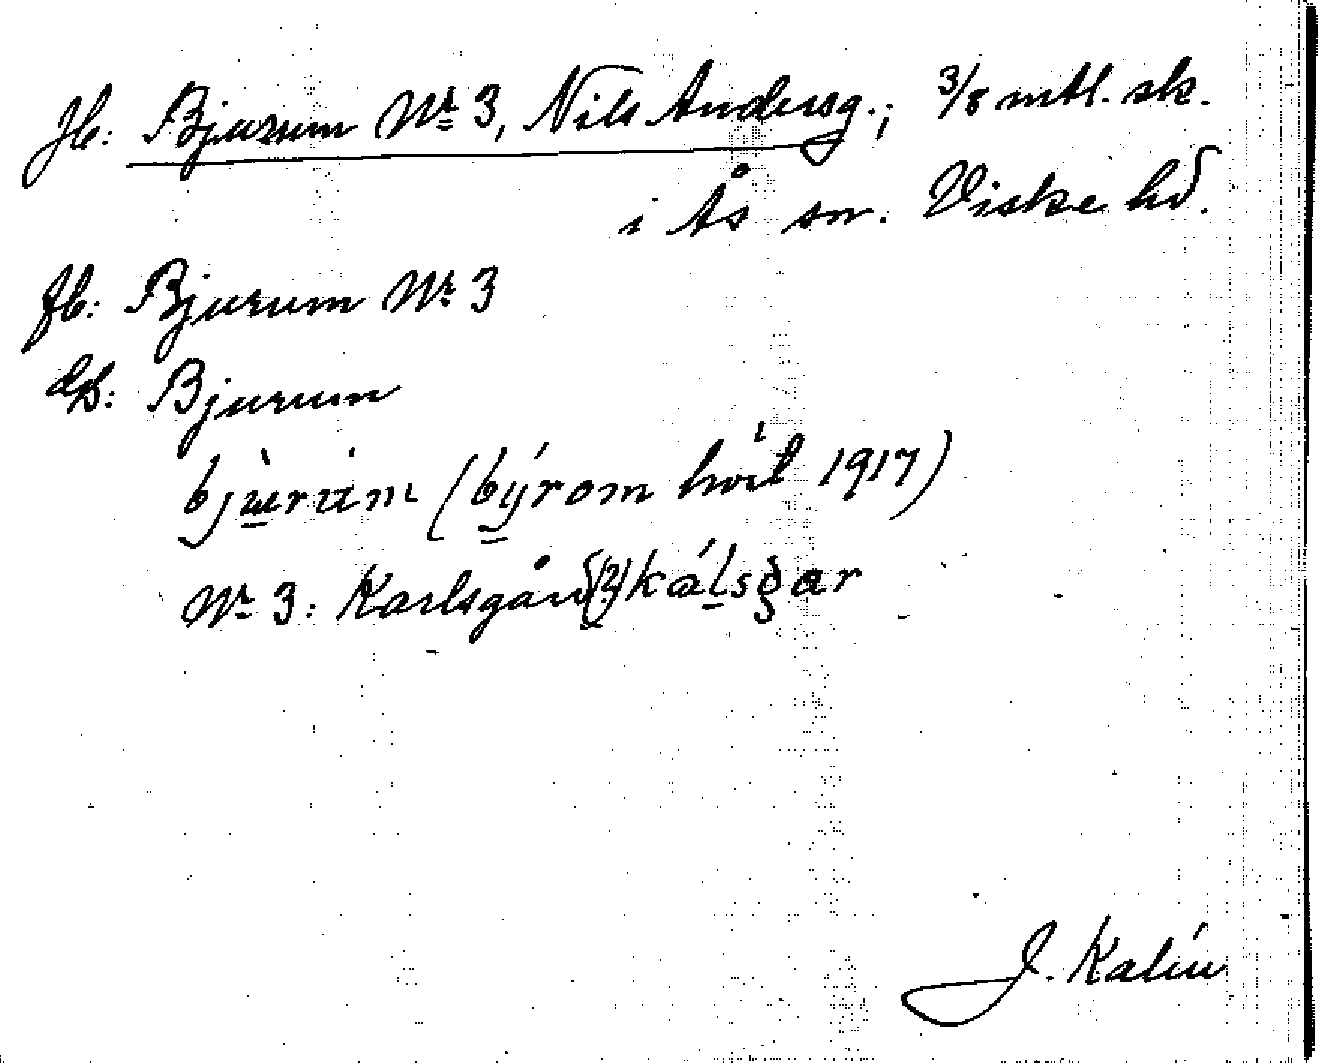 Jb: Bjurum Nr 3, Nils Andersg.; 3/8 mtl. sk.
i Ås sn. Viske hd.
fb: Bjurum Nr 3
Bjurum
bjùrum (býrom 1917)
Nr 3: Karlsgård (?) kálsgar
J. Kalén